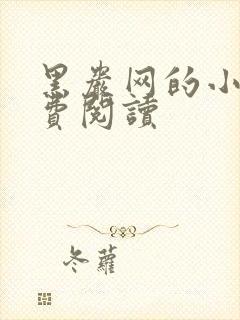 黑岩网的小
費閱讀
冬蘿